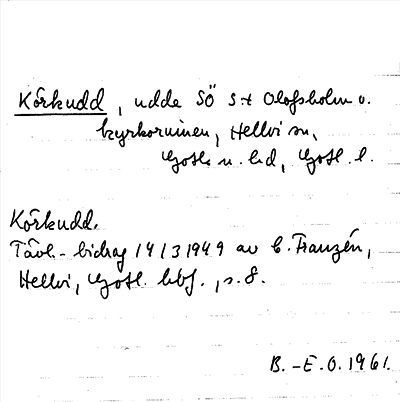 Kôrkudd, udde SÖ S:t Olofsholm o.
kyrkoruinen, Hellvi sn,
Gotl. n. hd, Gotl. l.
Kôrkudd.
Tävl.-bidrag 14/3 1949 av C. Franzén,
Hellvi, Gotl. hbf., s. 8.
B.-E.O. 1961.